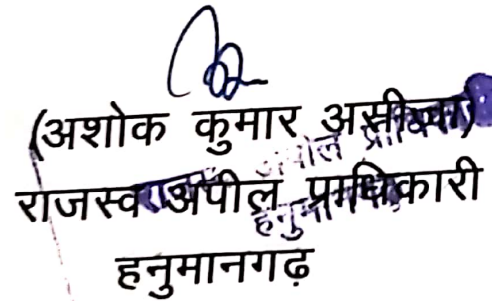 (अशोक कुमार असीजा)
राजस्व अपील प्राधिकारी
हनुमानगढ़